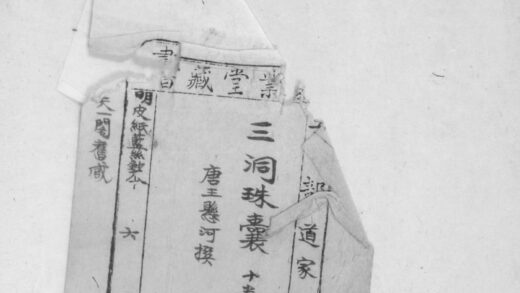 業堂藏書
部道家
三洞珠囊 十
唐王懸河撰
明皮紙藍絲鈔本 六
天一閣舊藏